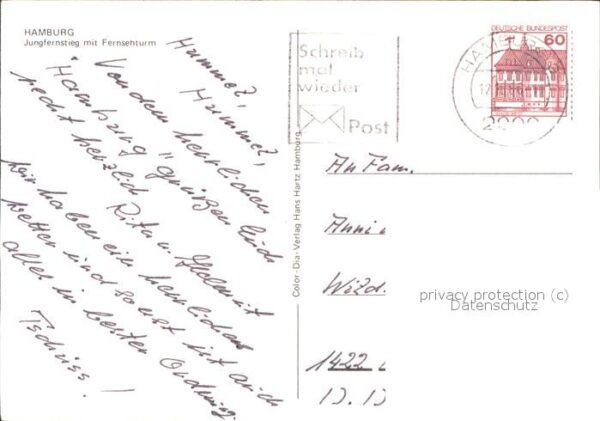 HAMBURG
Jungfernstieg mit Fernsehturm
Hummel,
Hummel,
Von dem herrlichen
"Hamburg" grüßen Euch
recht herzlich Rita u. Helmut
Wir haben ein herrliches
Wetter und sonst ist auch
alles in bester Ordnung.
Tschüss!
Color-Dia-Verlag Hans Hartz Hamburg
Schreib
mal
wieder
Post
HAMBURG
2000
DEUTSCHE BUNDESPOST
60
An Fam.
1422
privacy protection (c)
Datenschutz